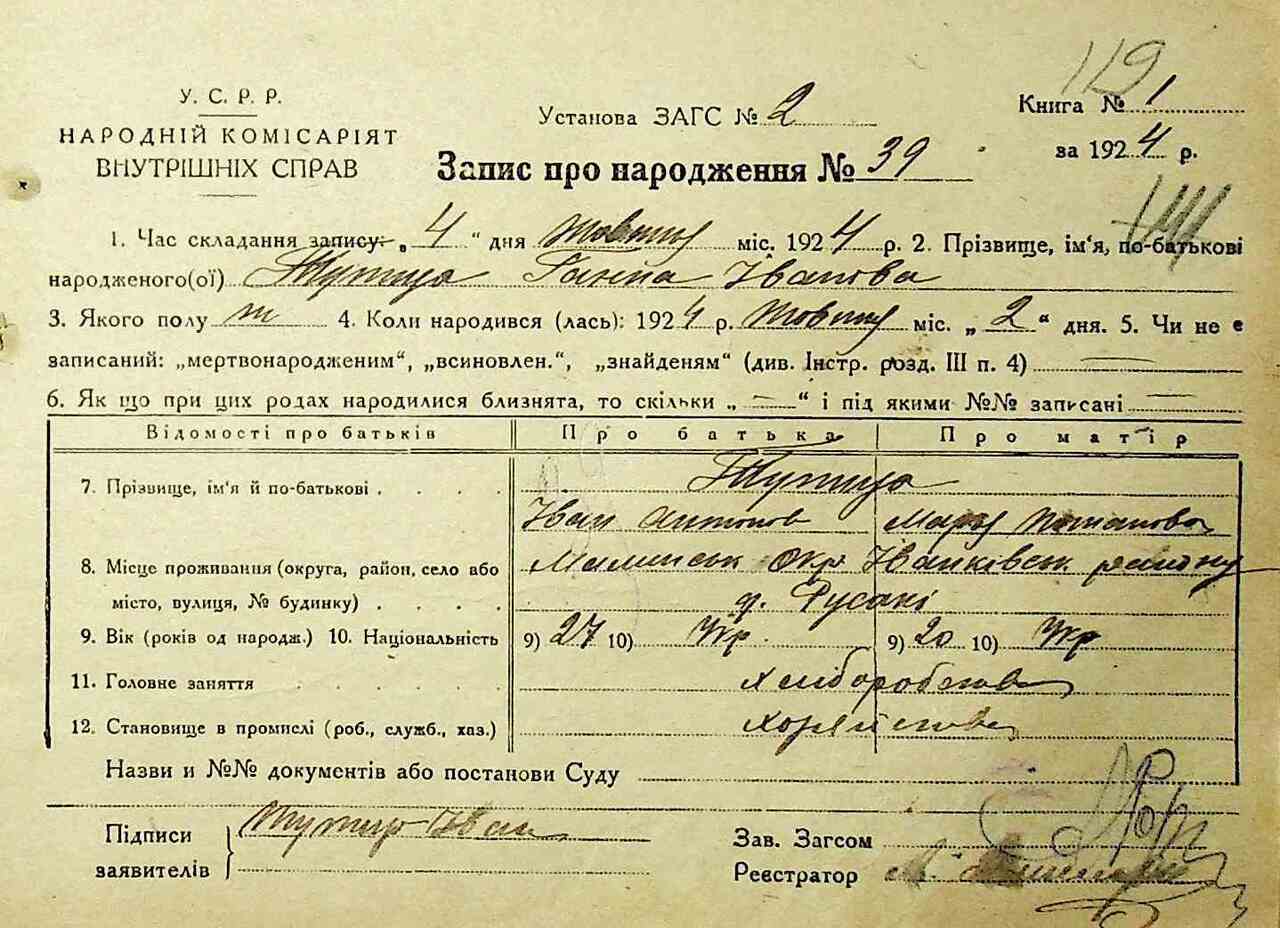 119
У. С. Р. Р.
НАРОДНІЙ КОМІСАРІЯТ
ВНУТРІШНІХ СПРАВ
Установа ЗАГС № 2
Книга № 1
за 1924 р.
Запис про народження № 39
1. Час складання запису: „4“ дня Жовтня міс. 1924 р. 2. Прізвище, ім‘я, по-батькові
народженого(ої) Ганна Іванова
3. Якого полу ж 4. Коли народився (лась): 1924 р. Жовтня міс. „2“ дня. 5. Чи не є
записаний: „мертвонародженим“, „всиновлен.“, „знайденям“ (див. Інстр. розд. III п. 4) —
6. Як що при цих родах народилися близнята, то скільки „ — “ і під якими №№ записані —
Відомості про батьків Про батька Про матір
7. Прізвище, ім‘я й по-батькові
Іван Антонов Мария
8. Місце проживання (округа, район, село або Окр району
місто, вулиця, № будинку) Русакі
9. Вік (років од народж.) 10. Національність 9) 27 10) Укр. 9) 20 10) Укр
11. Головне заняття Хліборобство
12. Становище в промислі (роб., служб., хаз.)
Назви и №№ документів або постанови Суду
Підписи
заявителів
Іван
Зав. Загсом
Реєстратор